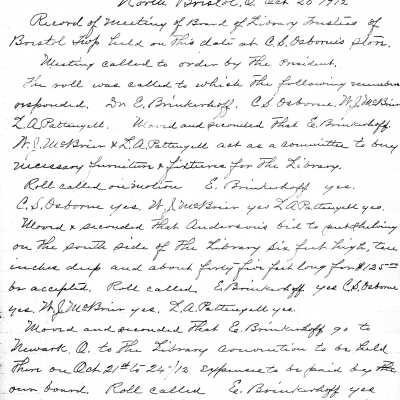 North Bristol, O. Oct 20 1912
Record of Meeting of Board of Library Trustees of
Bristol Twp held on this date at C.S. Osborne's store.
Meeting called to order by the President.
The roll was called to which the following members
responded. Dr E. Brinkerhoff. C.S. Osborne, W.J. McBrier
L.A. Pattengell. Moved and seconded that E. Brinkerhoff.
W.J. McBrier & L.A. Pattengell act as a committee to buy
necessary furniture & fixtures for the Library.
Roll called on motion E. Brinkerhoff yes.
C.S. Osborne yes. W.J. McBrier yes L.A. Pattengell yes.
Moved & seconded that Anderson's bid to put shelving
on the south side of the Library six feet high, ten
inches deep and about forty five feet long for $125.00
be accepted. Roll called. E Brinkerhoff yes C.S. Osborne
yes, W.J. McBrier yes, L.A. Pattengell yes.
Moved and seconded that E. Brinkerhoff go to
Newark O. to the Library convention to be held
there on Oct 21st to 24-/12 expenses to be paid by the
own board. Roll called E. Brinkerhoff yes